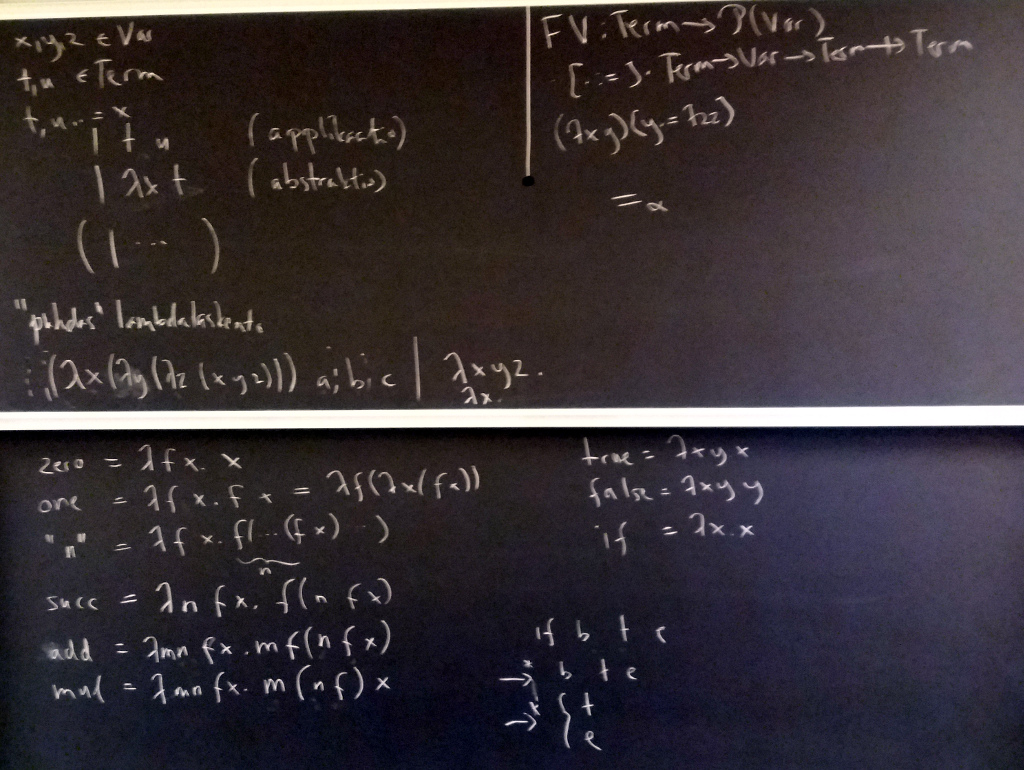 x, y, z ∈ Var
t, u ∈ Term
t, u ::= x
| t u (applikation)
| λx t (abstraktion)
(| ... )
lambda
(λx(λy(λz(x y z)))) a; b; c | λxyz.
λx.
FV : Term → P(Var)
[· := ·] : Term → Var → Term → Term
(λx y)(y := λzz)
=α
zero = λf x. x
one = λf x. f x = λf(λx(f x))
"n" = λf x. f(...(f x) )
n
succ = λn f x. f(n f x)
add = λmn f x. m f(n f x)
mul = λmn f x. m (n f) x
true = λxy x
false = λxy y
if = λx. x
if b t e
→* b t e
→* { t
e